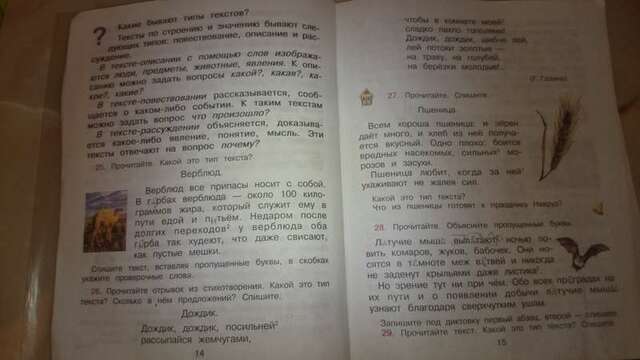 Какие бывают типы текстов?
?
Тексты по строению и значению бывают сле-
дующих типов: повествование, описание и рас-
суждение.
В тексте-описании с помощью слов изобража-
ются люди, предметы, животные, явления. К опи-
санию можно задать вопросы какой?, какая?, ка-
кое?, какие?
В тексте-повествовании рассказывается, сооб-
щается о каком-либо событии. К таким текстам
можно задать вопрос что произошло?
В тексте-рассуждении объясняется, доказыва-
ется какое-либо явление, понятие, мысль. Эти
тексты отвечают на вопрос почему?
25. Прочитайте. Какой это тип текста?
Верблюд.
Верблюд все припасы носит с собой.
В г.рбах верблюда — около 100 кило-
граммов жира, который служит ему в
пути едой и п.тьём. Недаром после
долгих переходов² у верблюда оба
г.рба так худеют, что даже свисают,
как пустые мешки.
Спишите текст, вставляя пропущенные буквы, в скобках
укажите проверочные слова.
26. Прочитайте отрывок из стихотворения. Какой это тип
текста? Сколько в нём предложений? Спишите.
Дождик.
Дождик, дождик, посильней²
рассыпайся жемчугами,
14
чтобы в комнате моей²
сладко пахло тополями!
Дождик, дождик, лей
лей потоки золотые —
на траву, на голубей,
на берёзки молодые!..
27. Прочитайте. Спишите.
Пшеница.
Всем хороша пшеница: и зёрен
даёт много, и хлеб из неё получа-
ется вкусный. Одно плохо: боится
вредных насекомых, сильных² мо-
розов и засухи.
Пшеница любит, когда за ней²
ухаживают не жалея сил.
Какой это тип текста?
Что из пшеницы готовят к празднику Навруз?
28. Прочитайте. Объясните пропущенные буквы.
Л.тучие мыши выл.тают ночью ло-
вить комаров, жуков, бабочек. Они но-
сятся в т.мноте меж в.твей и никогда
не заденут крыльями даже листика!
Но зрение тут ни при чём. Обо всех преградах на
их пути и о появлении добычи л.тучие мыши
узнают благодаря сверхчутким ушам.
Запишите под диктовку первый абзац, второй — спишите.
29. Прочитайте текст. Какой это тип текста? Спишите.
15